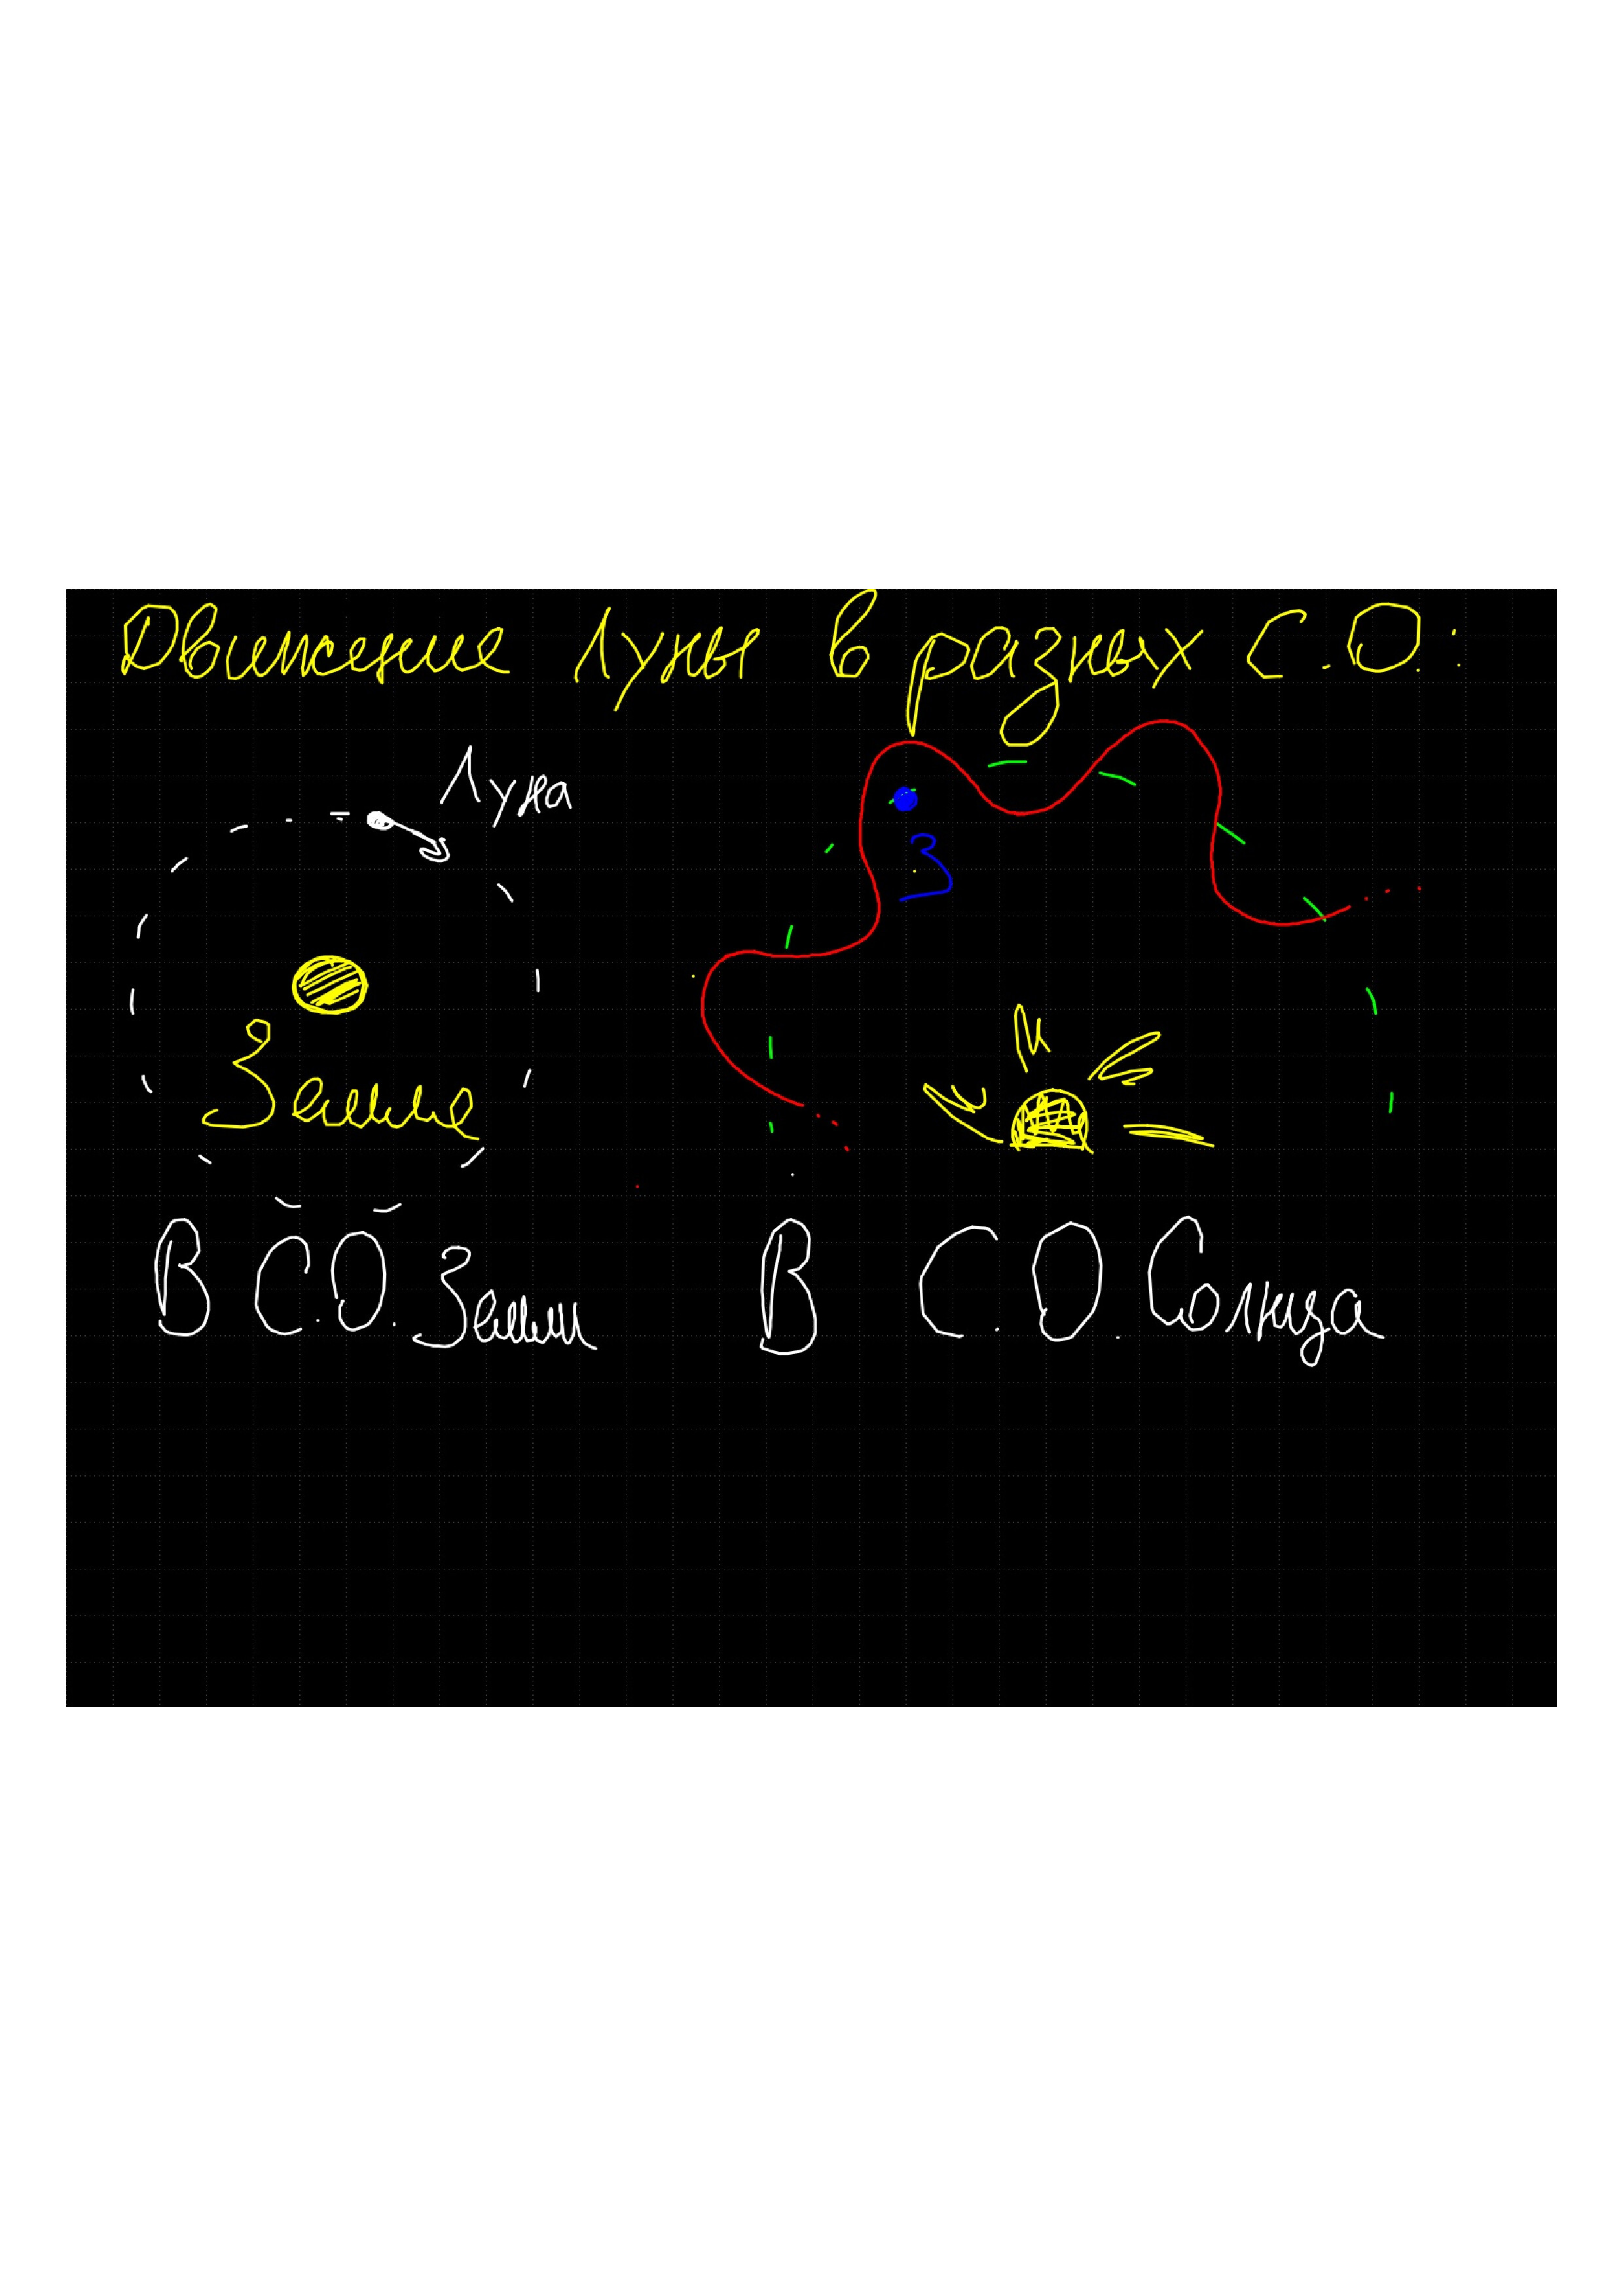 Движение Луны в разных С.О.:
Луна
З
Земля
В С.О. Земли
В С.О. Солнца